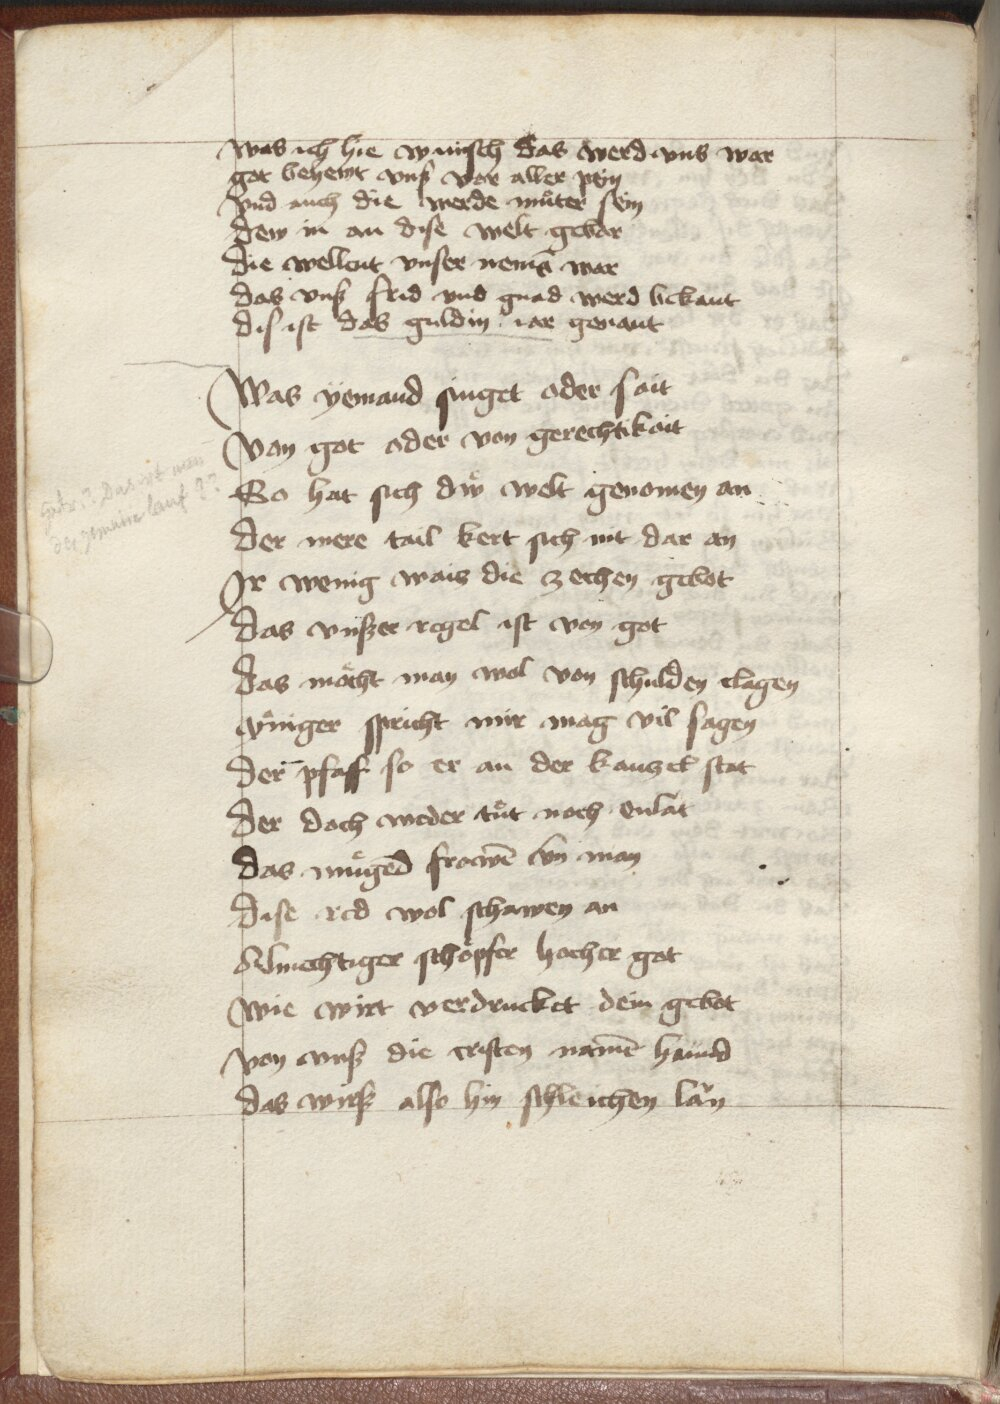 was ich hie wunsch das werd vns war
got behemt vnß vor aller pein
vnd auch die werde můter sein
dew in an dise welt gebar
die wellent vnser nemē war
das vnß frid vnd gnad werd bekant
dis ist das guldin iar genant
Was yemand singet oder sait
Von got oder von gerechtikait
So hat sich dw̋ welt genomen an
der mere tail kert sich nit dar an
Ir wenig wais die zechen gebot
das vnßer regel ist von got
das mőcht man wol von schulden clagen
ainiger spricht mir mag vil sagen
der pfaff so er an der kanzel stat
der doch weder tůt noch enlat
das műgēd frowē vn̄ man
dise red wol schawen an
Almechtiger schőpfer hocher got
wie wirt verdrucket dein gebot
von vnß die cristen namē hannd
das wirß also hin schleichen lan
Satz? Das ist von
der gemaine lauf 2?